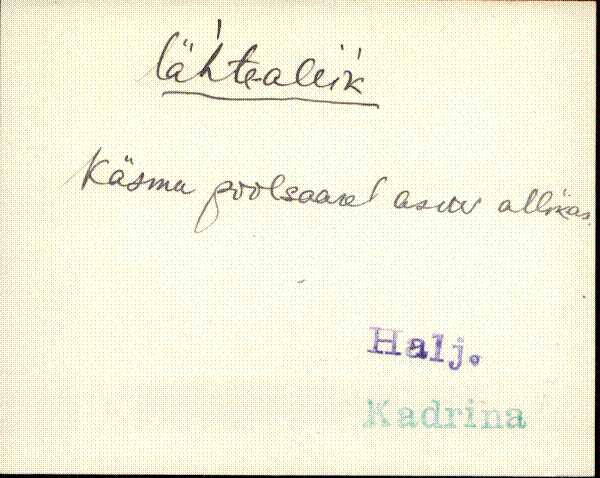 lähteallik
Käsmu poolsaarel asuv allikas.
Halj.
Kadrina